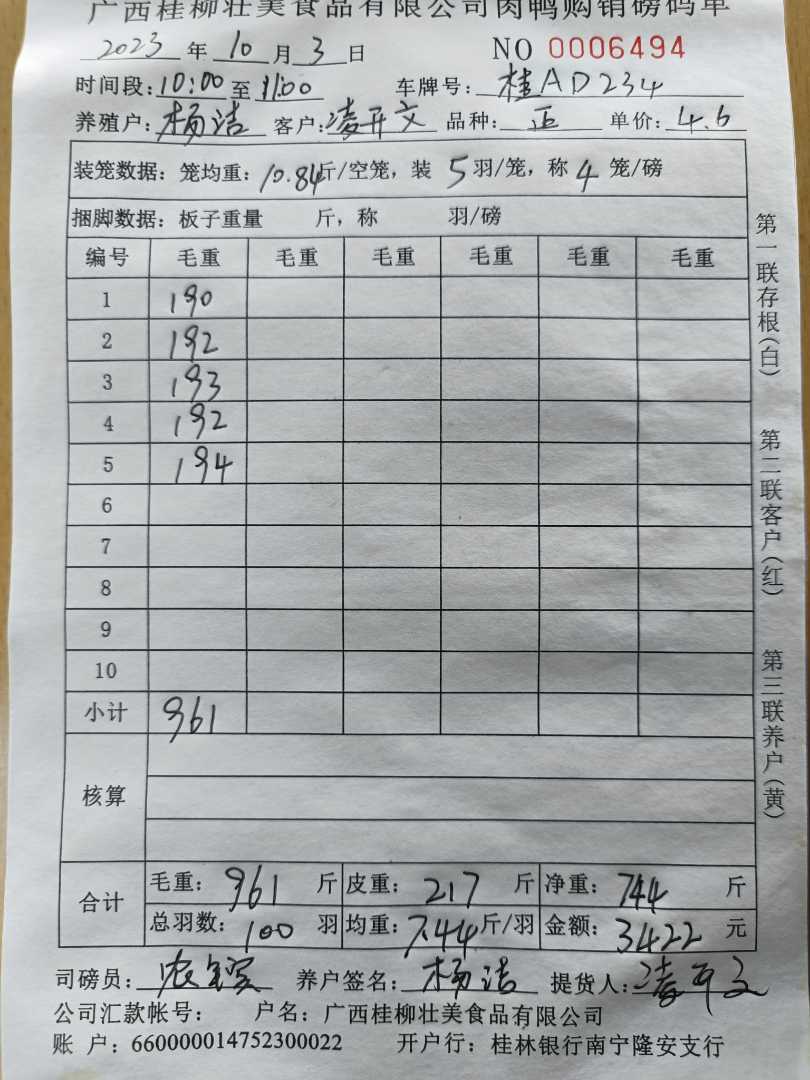 广西桂柳壮美食品有限公司肉鸭购销磅码单
2023 年 10 月 3 日 NO 0006494
时间段: 10:00 至 11:00 车牌号: 桂AD234
养殖户: 杨洁 客户: 凌开文 品种: 正 单价: 4.6
装笼数据: 笼均重: 10.84 斤/空笼, 装 5 羽/笼, 称 4 笼/磅
捆脚数据: 板子重量 斤, 称 羽/磅
编号 毛重 毛重 毛重 毛重 毛重 毛重
1 190
2 192
3 193
4 192
5 194
6
7
8
9
10
小计 961
核算
合计 毛重: 961 斤 皮重: 217 斤 净重: 744 斤
总羽数: 100 羽 均重: 7.44 斤/羽 金额: 3422 元
司磅员: 农 养户签名: 杨洁 提货人: 凌开文
公司汇款帐号: 户名: 广西桂柳壮美食品有限公司
账 户: 660000014752300022 开户行: 桂林银行南宁隆安支行
第一联存根(白) 第二联客户(红) 第三联养户(黄)